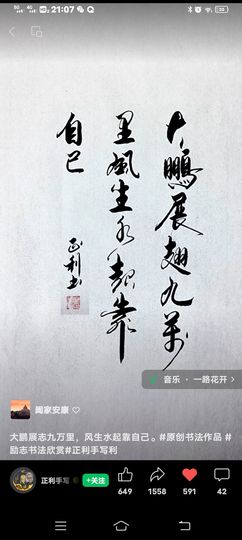 21:07
大鹏展翅九万
里风生水起靠
自己
正利书
音乐 · 一路花开
阖家安康
大鹏展志九万里，风生水起靠自己。#原创书法作品 #
励志书法欣赏#正利手写利
正利手写
+关注
649
1558
591
42